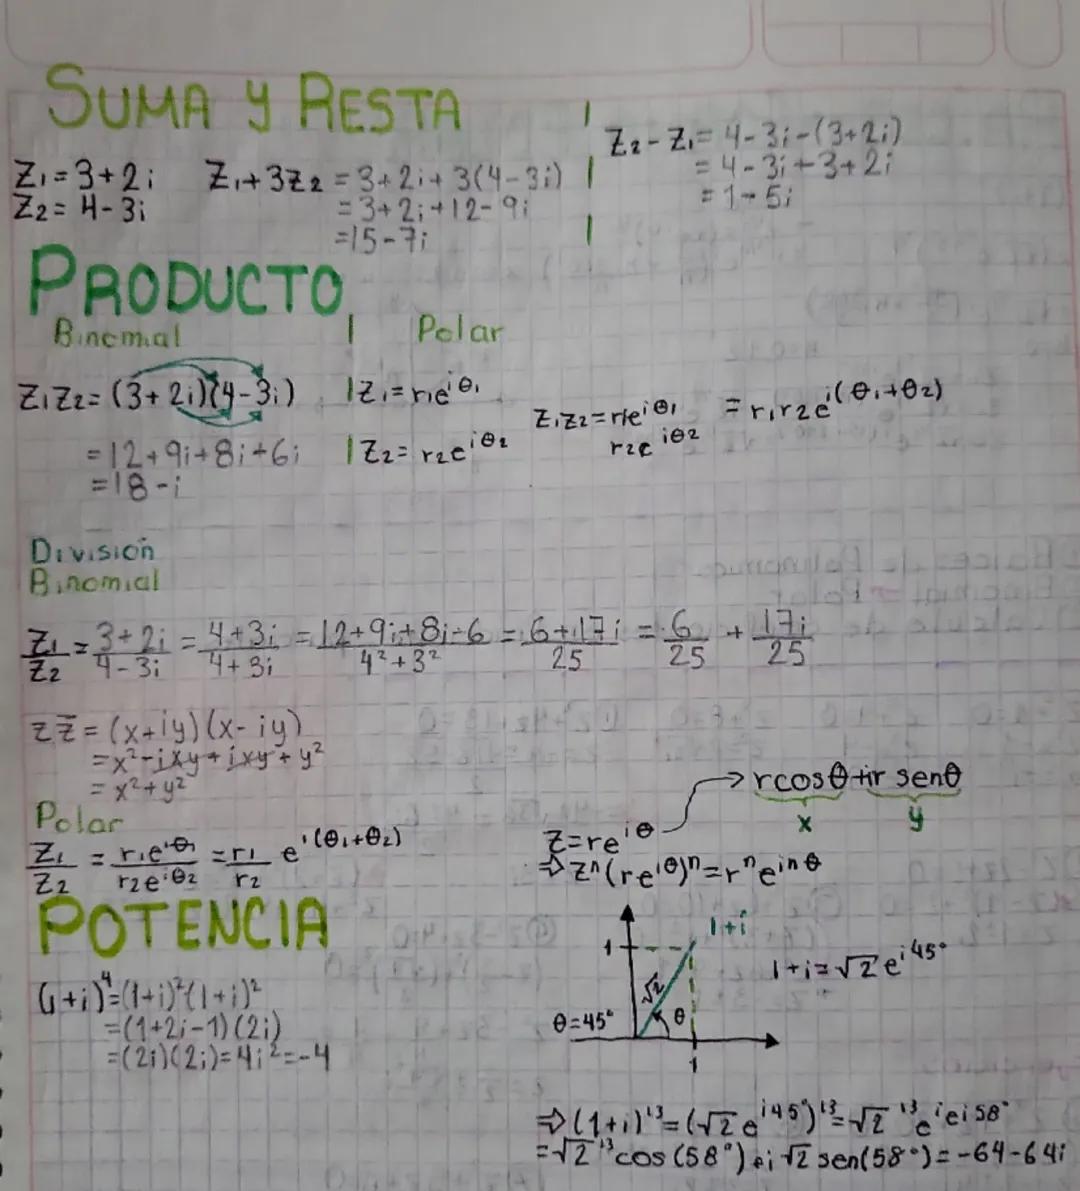 SUMA Y RESTA
Z₁ = 3+2i
Z₂ = 4-3i
Z₁+3Z₂ = 3+2i+3(4-3i)
= 3+2i+12-9i
=15-7i
Z₂-Z₁= 4-3i-(3+2i)
= 4-3i+3+2i
= 1-5i
PRODUCTO
Binomial | Polar
Z₁Z₂= (3+2i)(4-3i)
= 12+9i+8i+6i
= 18-i
Z₁=r₁e^iθ₁
Z₂= r₂e^iθ₂
Z₁Z₂=r₁e^iθ₁ = r₁r₂e^i(θ₁+θ₂)
r₂e^iθ₂
División
Binomial
Z₁/Z₂ = 3+2i/4-3i = 4+3i/4+3i = 12+9i+8i-6/4²+3² = 6+17i/25 = 6/25 + 17i/25
ZZ̄ = (x+iy)(x-iy)
= x²-ixy+ixy+y²
= x²+y²
Polar
Z₁/Z₂ = r₁e^iθ₁/r₂e^iθ₂ = r₁/r₂ e^i(θ₁+θ₂)
rcosθ+ir senθ
x y
Z=re^iθ
⇒Zⁿ(re^iθ)ⁿ=rⁿe^inθ
POTENCIA
(1+i)⁴=(1+i)²(1+i)²
=(1+2i-1)(2i)
=(2i)(2i)=4i²=-4
1+i
1
√2
θ=45°
θ
1
1+i=√2e^i45°
⇒(1+i)¹³=(√2e^i45°)¹³=√2¹³e^iei58°
=√2¹³cos(58°)+i√2sen(58°)=-64-64i